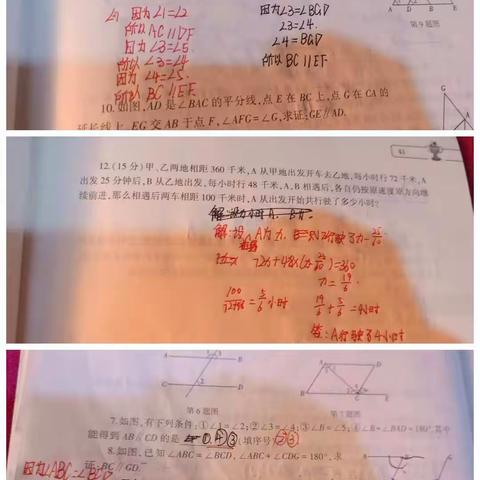 因为∠1=∠2
所以AC∥DF
因为∠3=∠5.
所以∠3=∠4
因为 ∠4=∠5.
所以 BC∥EF
因为∠3=∠BGD
∠3=∠4.
∠4=∠BGD
所以 BC∥EF
A D B E
第9题图
10. 如图,AD 是∠BAC 的平分线,点 E 在 BC 上,点 G 在 CA 的
延长线上,EG 交 AB 于点 F,∠AFG=∠G,求证:GE∥AD.
G
A
61
12. (15 分)甲、乙两地相距 360 千米,A 从甲地出发开车去乙地,每小时行 72 千米,A
出发 25 分钟后,B 从乙地出发,每小时行 48 千米,A,B 相遇后,各自仍按原速度原方向继
续前进,那么相遇后两车相距 100 千米时,A 从出发开始共行驶了多少小时?
解:设
100/72+48=5/6小时
19/6+5/6=4小时
答:A行驶了4小时
A B
C D
第6题图
第7题图
7. 如图,有下列条件:①∠1=∠2;②∠3=∠4;③∠B=∠5;④∠B+∠BAD=180°.其中
能得到 AB∥CD 的是 (填序号)②③
8. 如图,已知∠ABC=∠BCD,∠ABC+∠CDG=180°,求
证:BC∥GD.
因为∠ABC=∠BCD